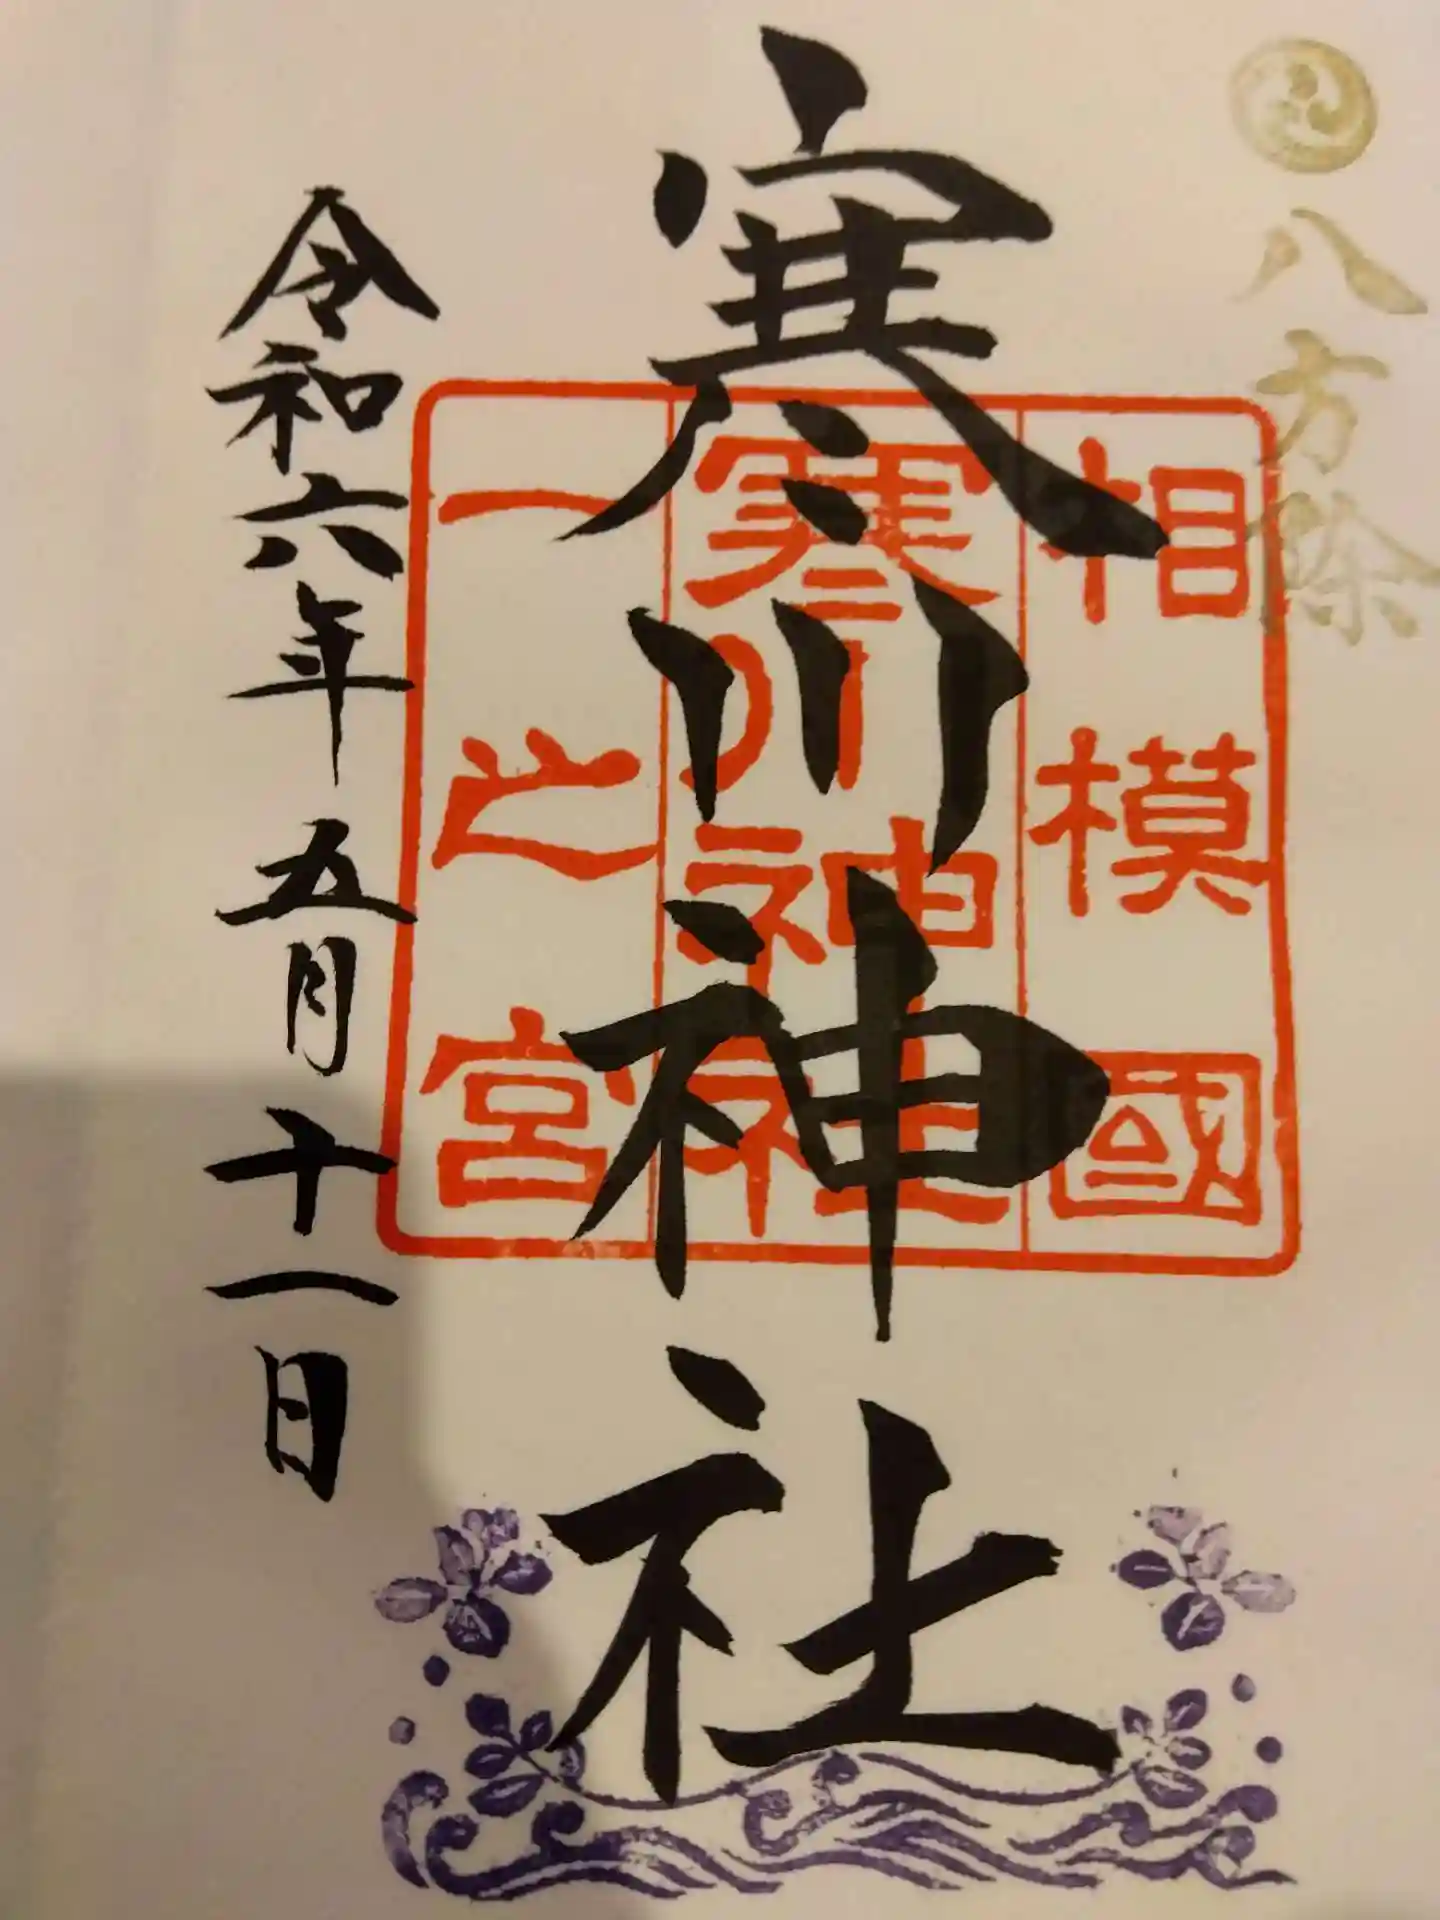 八方除
寒川神社
相模國
寒川神社
一之宮
令和六年五月十一日